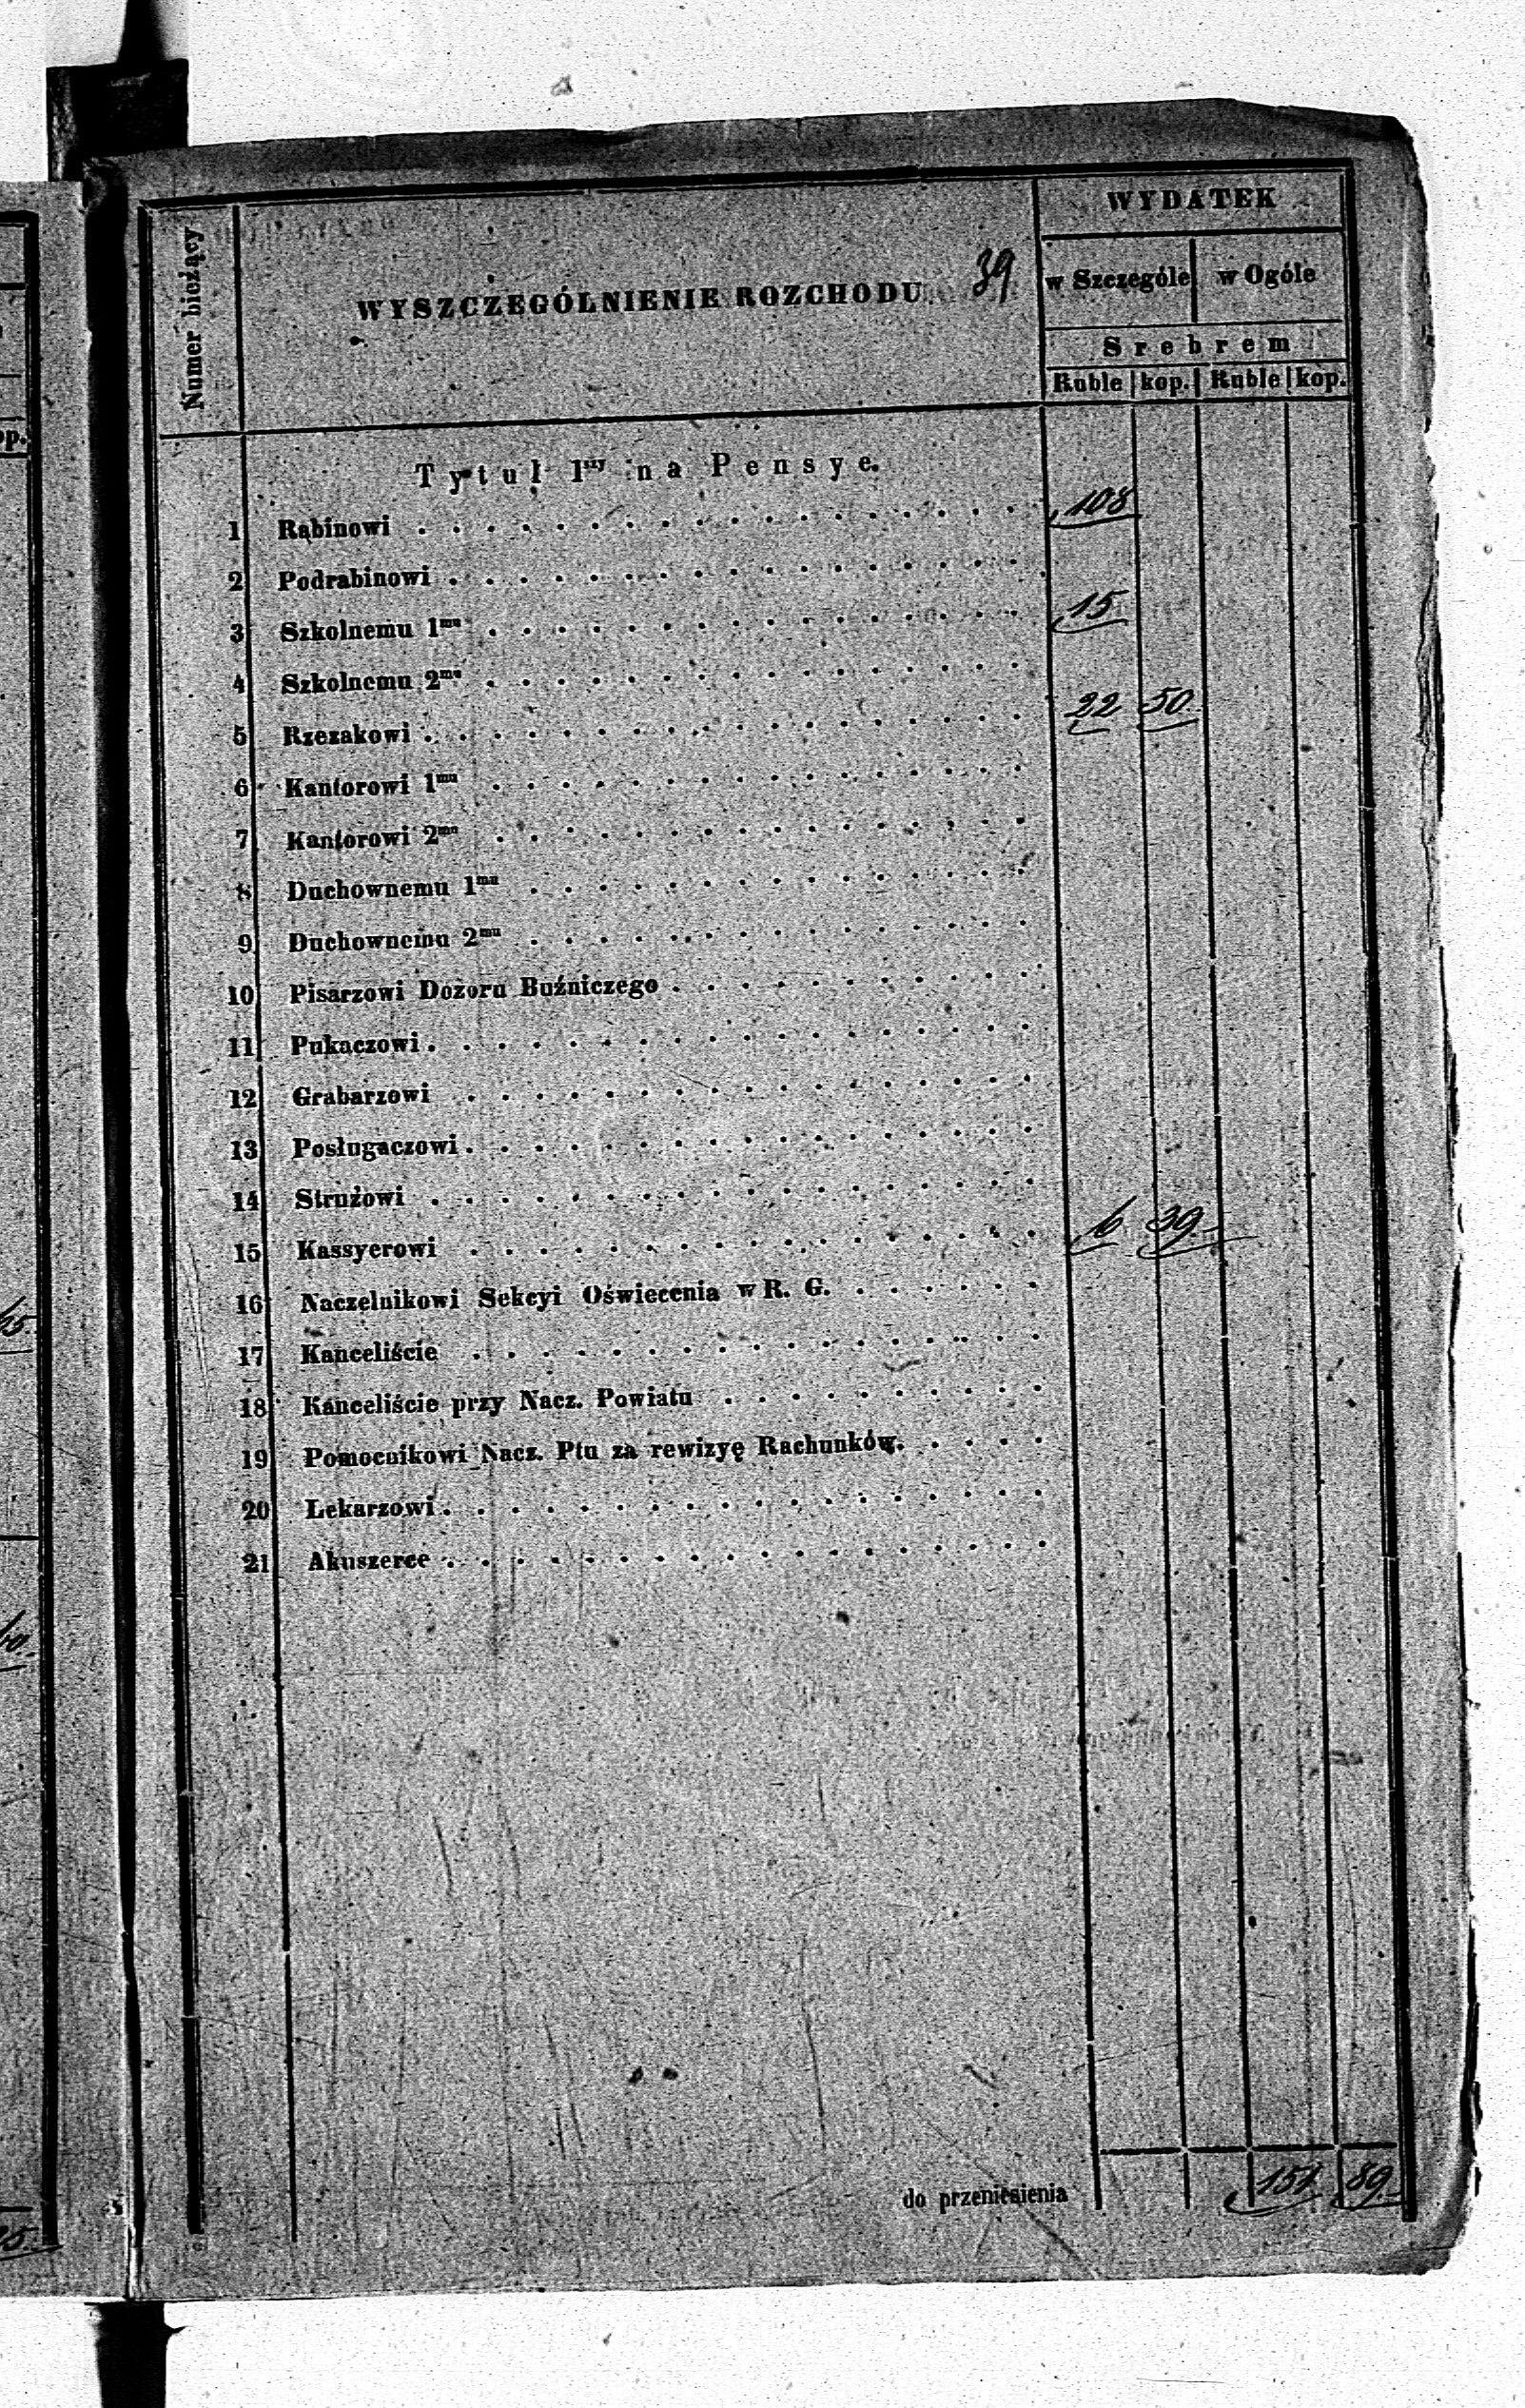 WYDATEK
Numer bieżący
WYSZCZEGÓLNIENIE ROZCHODU
39
w Szczególe
w Ogóle
Srebrem
Ruble kop. Ruble kop.
Tytuł 1szy na Pensye.
1 Rabinowi 108
2 Podrabinowi
3 Szkolnemu 1mu 15
4 Szkolnemu 2mu
5 Rzezakowi 22 50
6 Kantorowi 1mu
7 Kantorowi 2mu
8 Duchownemu 1mu
9 Duchownemu 2mu
10 Pisarzowi Dozoru Buźniczego
11 Pukaczowi
12 Grabarzowi
13 Posługaczowi
14 Strużowi
15 Kassyerowi 6 39
16 Naczelnikowi Sekcyi Oświecenia w R. G.
17 Kanceliście
18 Kanceliście przy Nacz. Powiatu
19 Pomocnikowi Nacz. Ptu za rewizyę Rachunków.
20 Lekarzowi
21 Akuszerce
do przeniesienia 151 89